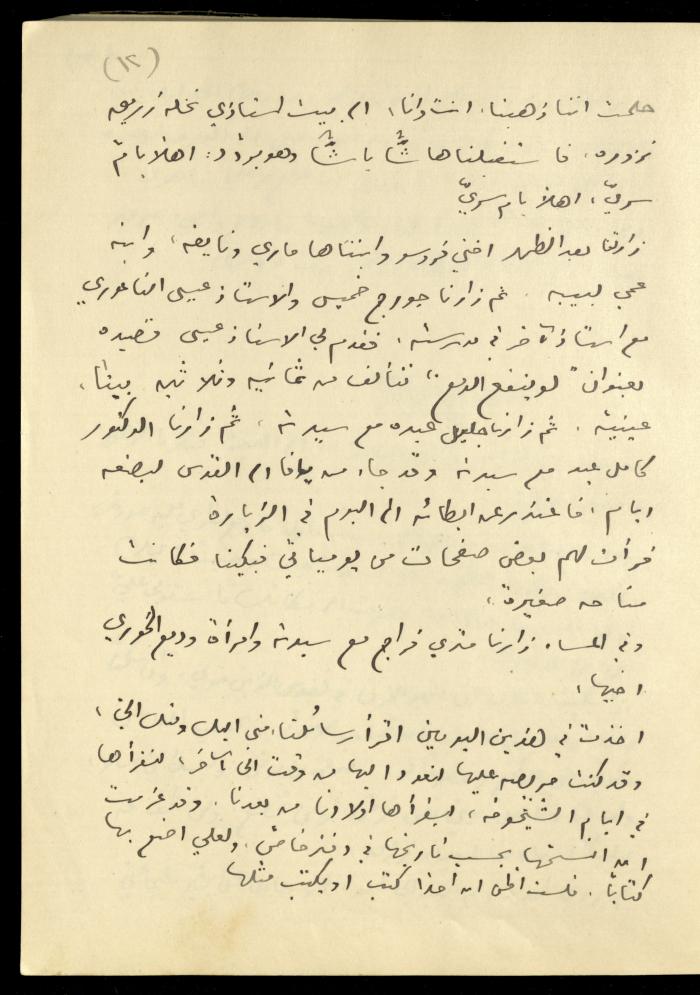 (١٢)
حلمت اننا ذهبنا، انت وانا، الى بيت استاذي نخله زريق
نزوره، فاستقبلنا هاشًّا باشًّا وهو يردّد: اهلاً بام
سريّ، اهلاً بام سريّ
زارتنا بعد الظهر اختي فروسو وابنتاها ماري ونايفه، وابنه
عمي لبيبه. ثم زارنا جورج خميس والاستاذ عيسى الناعوري
مع استاذ آخر في مدرسته، فقدم لي الاستاذ عيسى قصيده
بعنوان "لو ينفع الدمع" تتألف من ثمانيه وثلاثين بيتًا،
عينية. ثم زارنا جليل عبده مع سيدته، ثم زارنا الدكتور
كامل عبد مع سيدته وقد جاء من يافا الى القدس لبضعه
ايام، فاعتذر عن ابطائه الى اليوم في الزيارة
قرأت لهم بعض صفحات من يومياتي فبكينا فكانت
مناحه صغيرة،
وفي المساء زارنا متري فراج مع سيدته وامرأة وديع الخوري
اخيها،
اخذت في هذين اليومين اقرأ رسائلنا، مني اليك ومنك اليّ،
وقد كنت حريصه عليها لنعود اليها من وقت الى آخر، لنقرأها
في ايام الشيخوخه، ليقرأها اولادنا من بعدنا. وقد عزمت
ان انسخها بحسب تاريخها في دفتر خاص، ولعلي اضع بها
كتابًا. فلست اظن ان احدًا كتب او يكتب مثلها